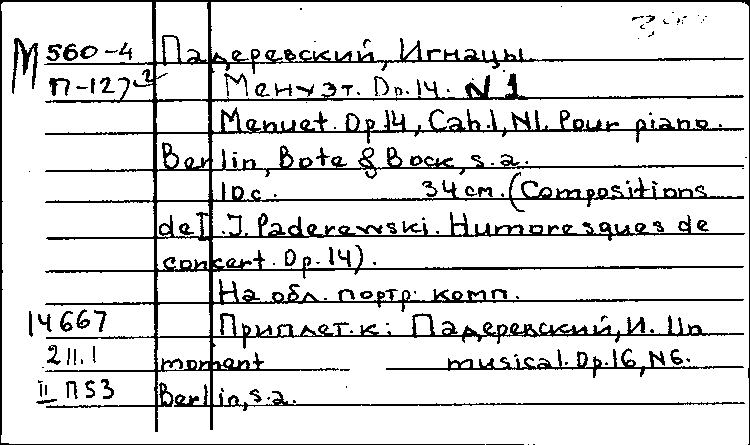 М 560-4 Падеревский, Игнацы
П-127² Менуэт. Op.14. N1
Menuet. Op 14, Cah.1, N1. Pour piano.
Berlin, Bote & Bock, s.a.
10 с. 34 см. (Compositions
de I.J. Paderewski. Humoresques de
concert. Op. 14).
На обл. портр. комп.
14667 Приплет. к: Падеревский, И. Un
2 11.1 moment musical. Op.16, N6.
II П53 Berlin, s.a.